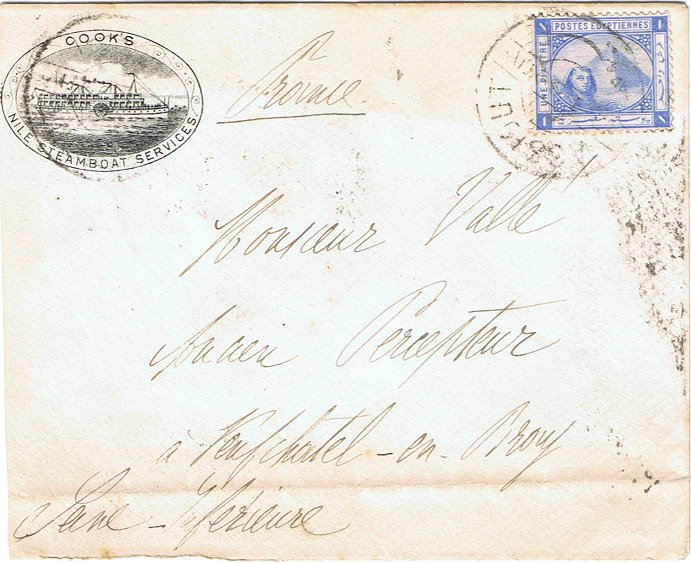 COOK'S
NILE STEAMBOAT SERVICES.
France
POSTES EGYPTIENNES
UNE PIASTRE
Monsieur Vallé
Ancien Percepteur
à Neufchatel-en-Bray
Seine-Inférieure